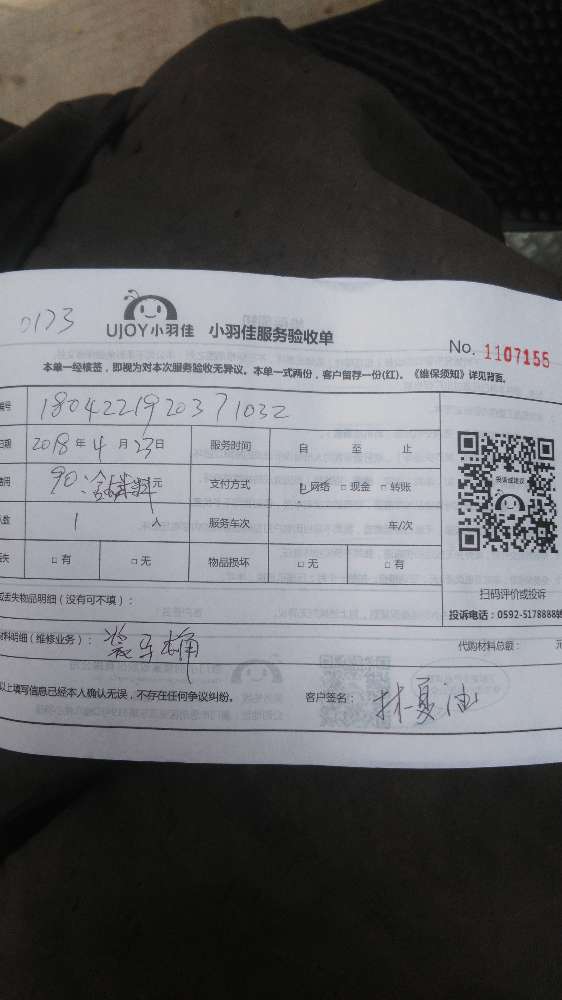 0173
UJOY小羽佳 小羽佳服务验收单
No. 1107155
本单一经核签，即视为对本次服务验收无异议。本单一式两份，客户留存一份(红)。《维保须知》详见背面。
编号 1804221920371032
日期 2018 年 4 月 23 日 服务时间 自 至 止
费用 90 元 支付方式 网络 □ 现金 □ 转账
人数 1 人 服务车次 车/次
□ 有 □ 无 物品损坏 □ 无 □ 有
投诉或建议
扫码评价或投诉
投诉电话：0592-5178888转
丢失物品明细（没有可不填）：
材料明细（维修业务）： 装马桶 代购材料总额： 元
以上填写信息已经本人确认无误，不存在任何争议纠纷。 客户签名： 林夏